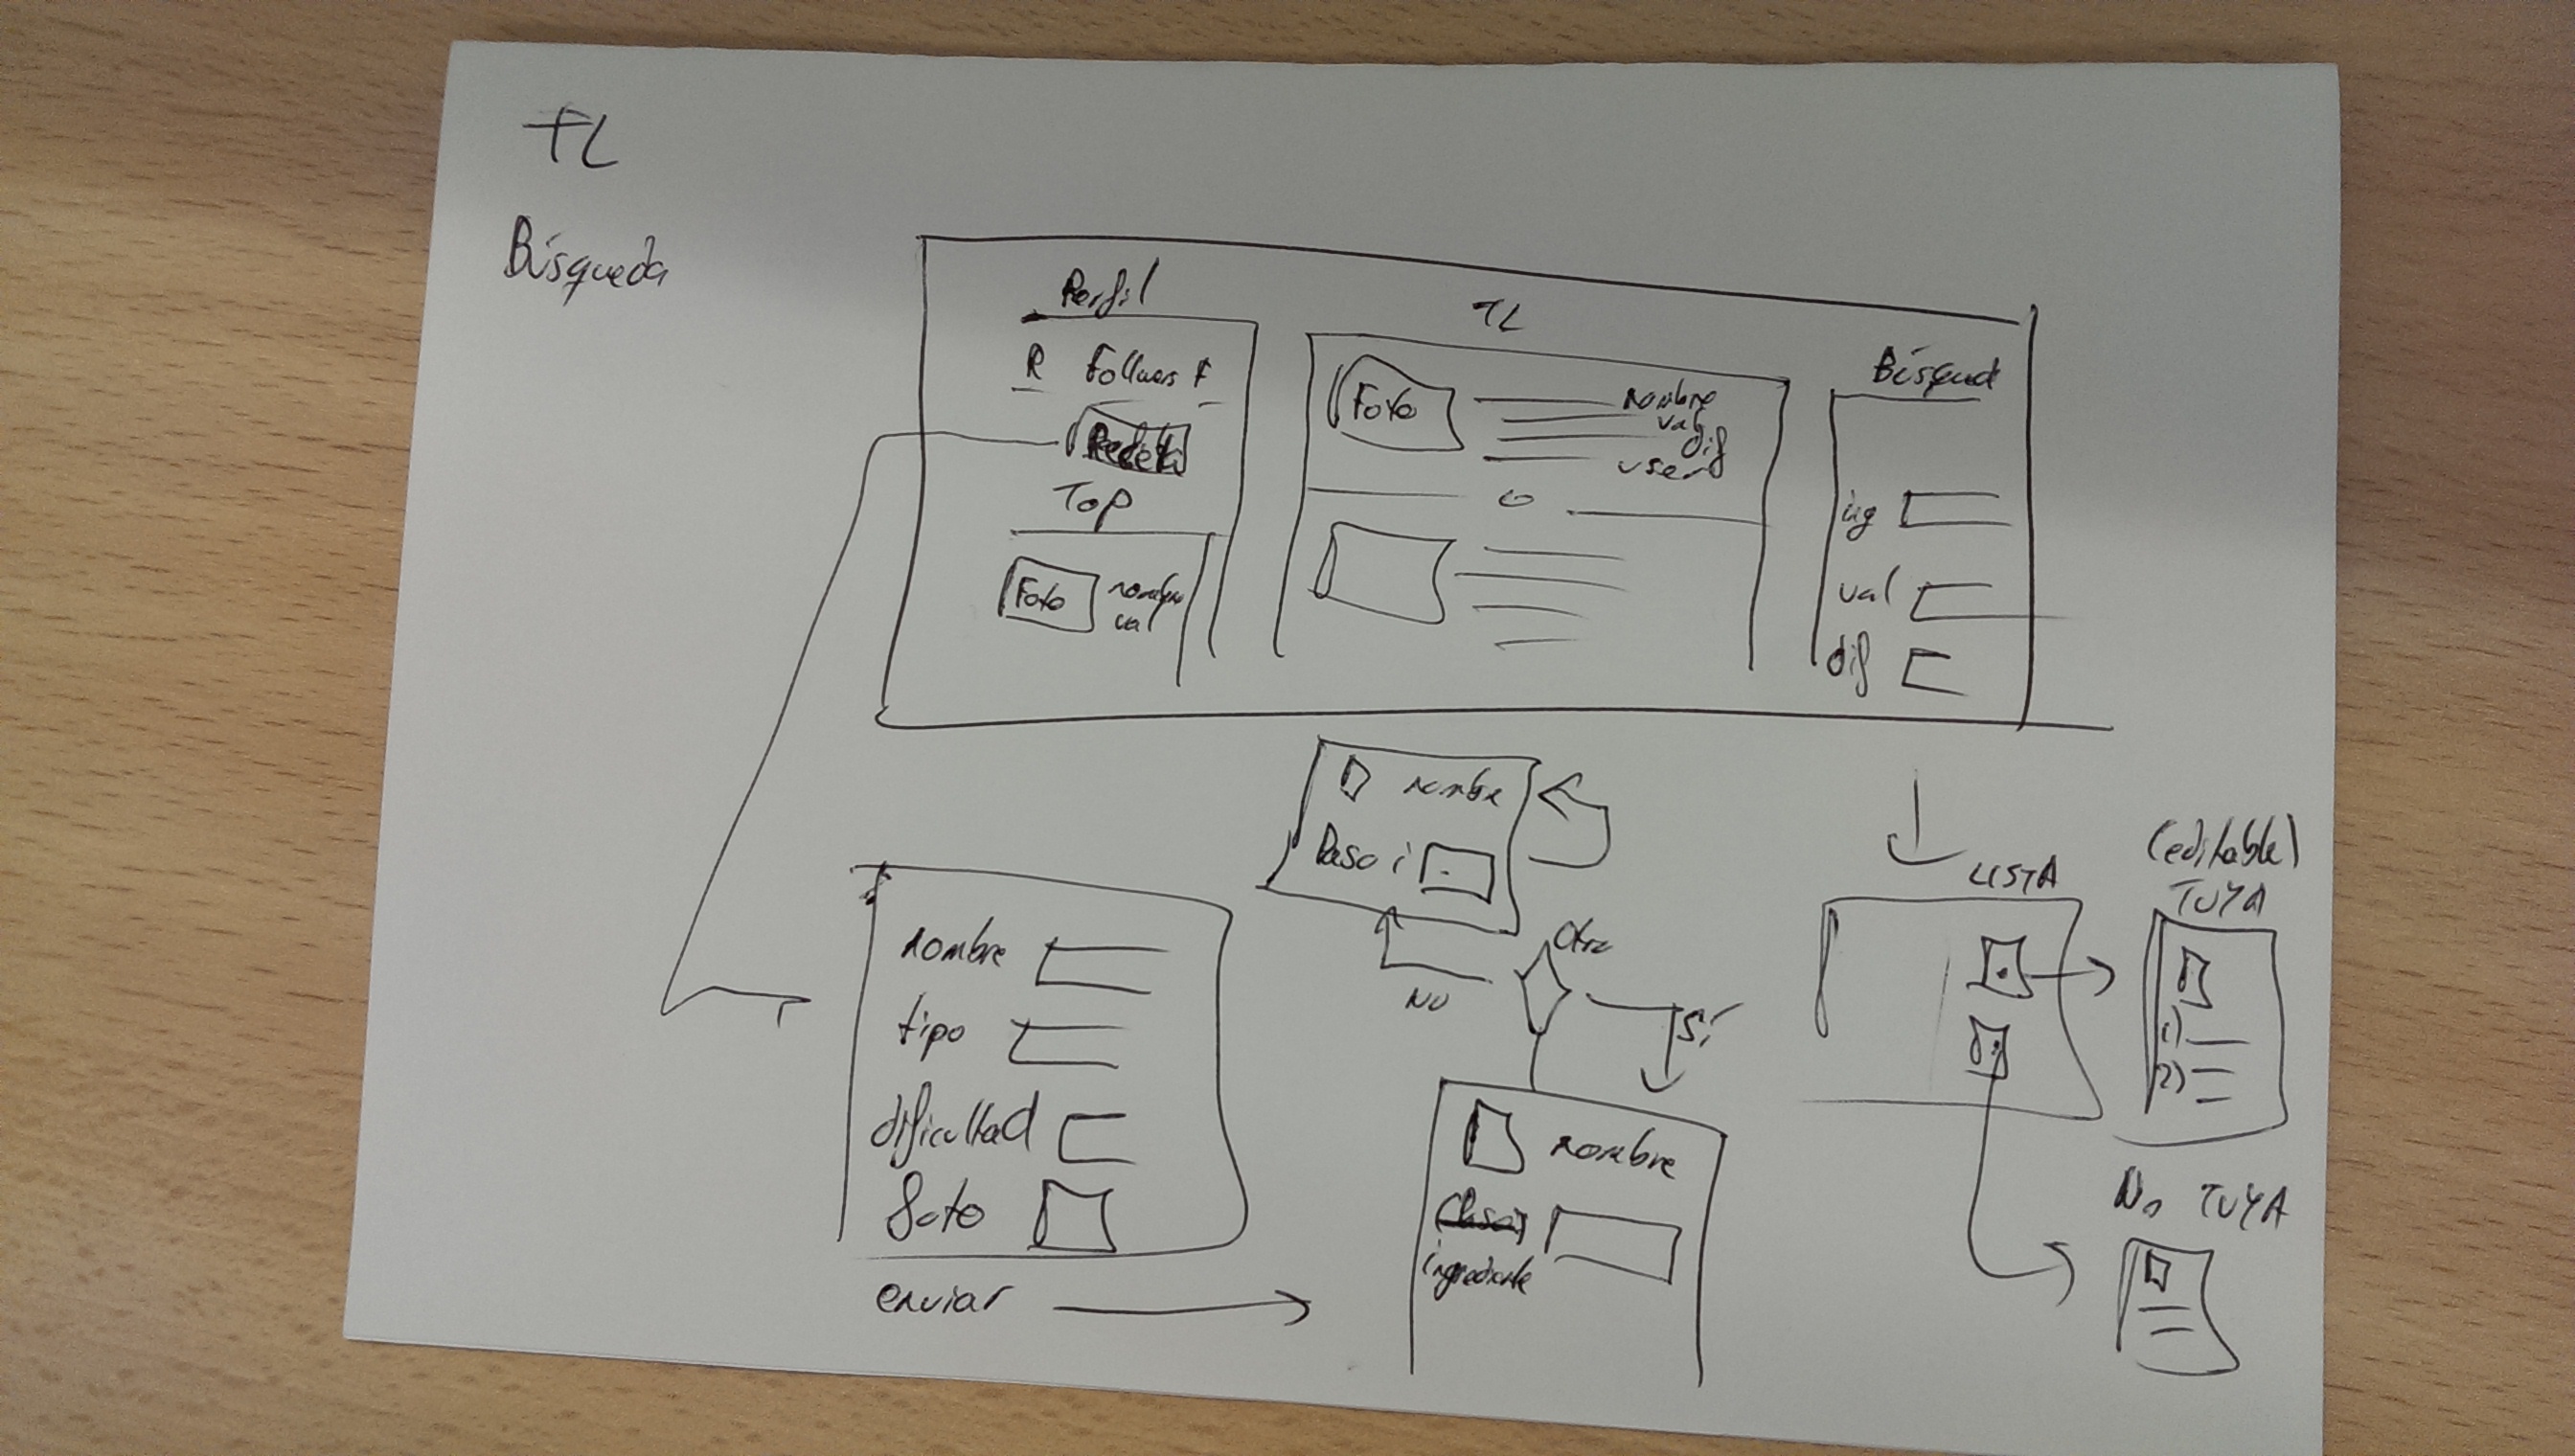 TL
Búsqueda
Perfil
R Follwers F
Top
Foto nombre
val
TL
Foto
nombre
val
dif
user
Búsqued
ing
val
dif
nombre
Paso i
Otro
NO
Sí
nombre
tipo
dificultad
foto
enviar
nombre
ingrediente
LISTA
(editable)
TUYA
1)
2)
No TUYA